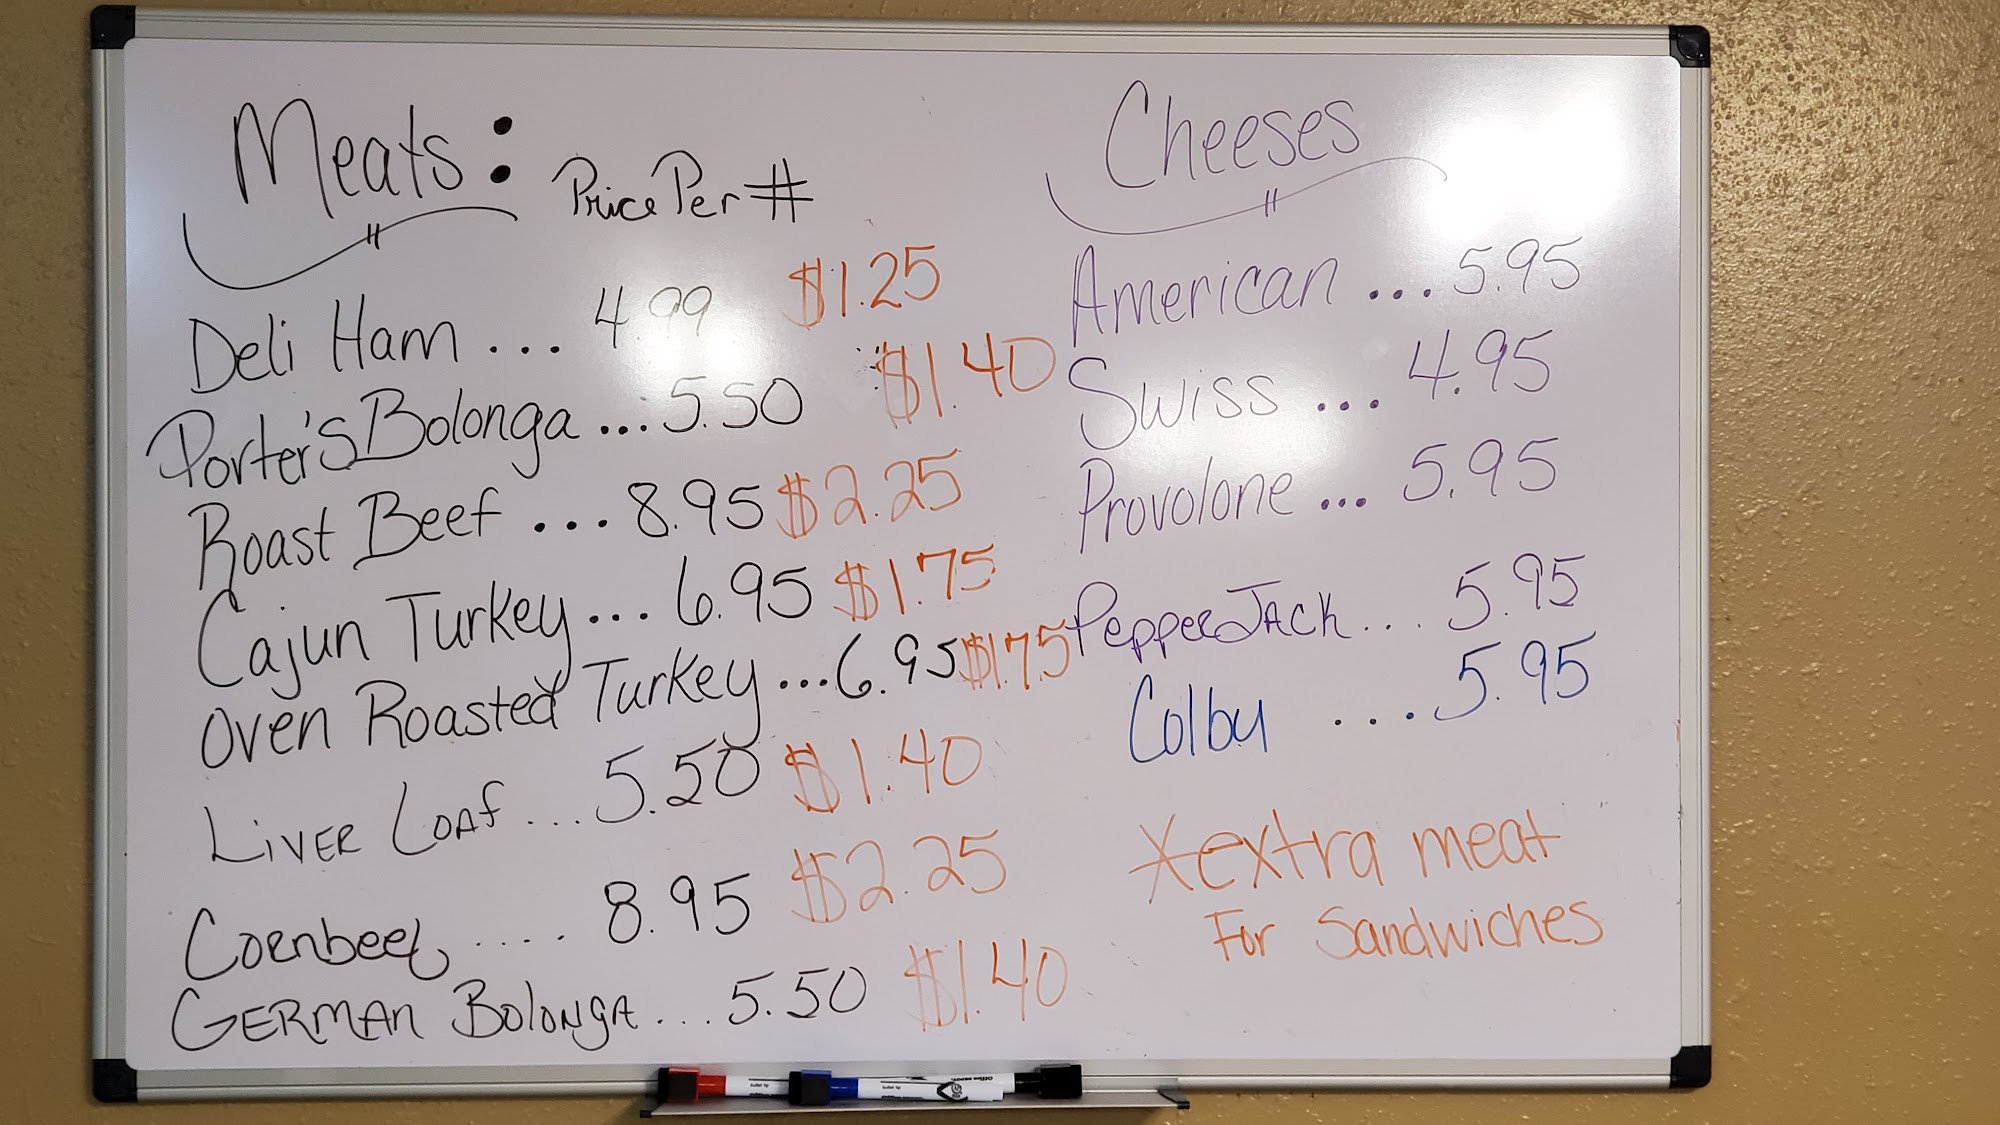 Meats:
Price Per #
Deli Ham ... 4.99 $1.25
Porter's Bolonga ... 5.50 $1.40
Roast Beef ... 8.95 $2.25
Cajun Turkey ... 6.95 $1.75
Oven Roasted Turkey ... 6.95 $1.75
Liver Loaf ... 5.50 $1.40
Cornbeef .... 8.95 $2.25
German Bolonga ... 5.50 $1.40
Cheeses
American ... 5.95
Swiss ... 4.95
Provolone ... 5.95
Pepper Jack ... 5.95
Colby ... 5.95
*extra meat
For Sandwiches